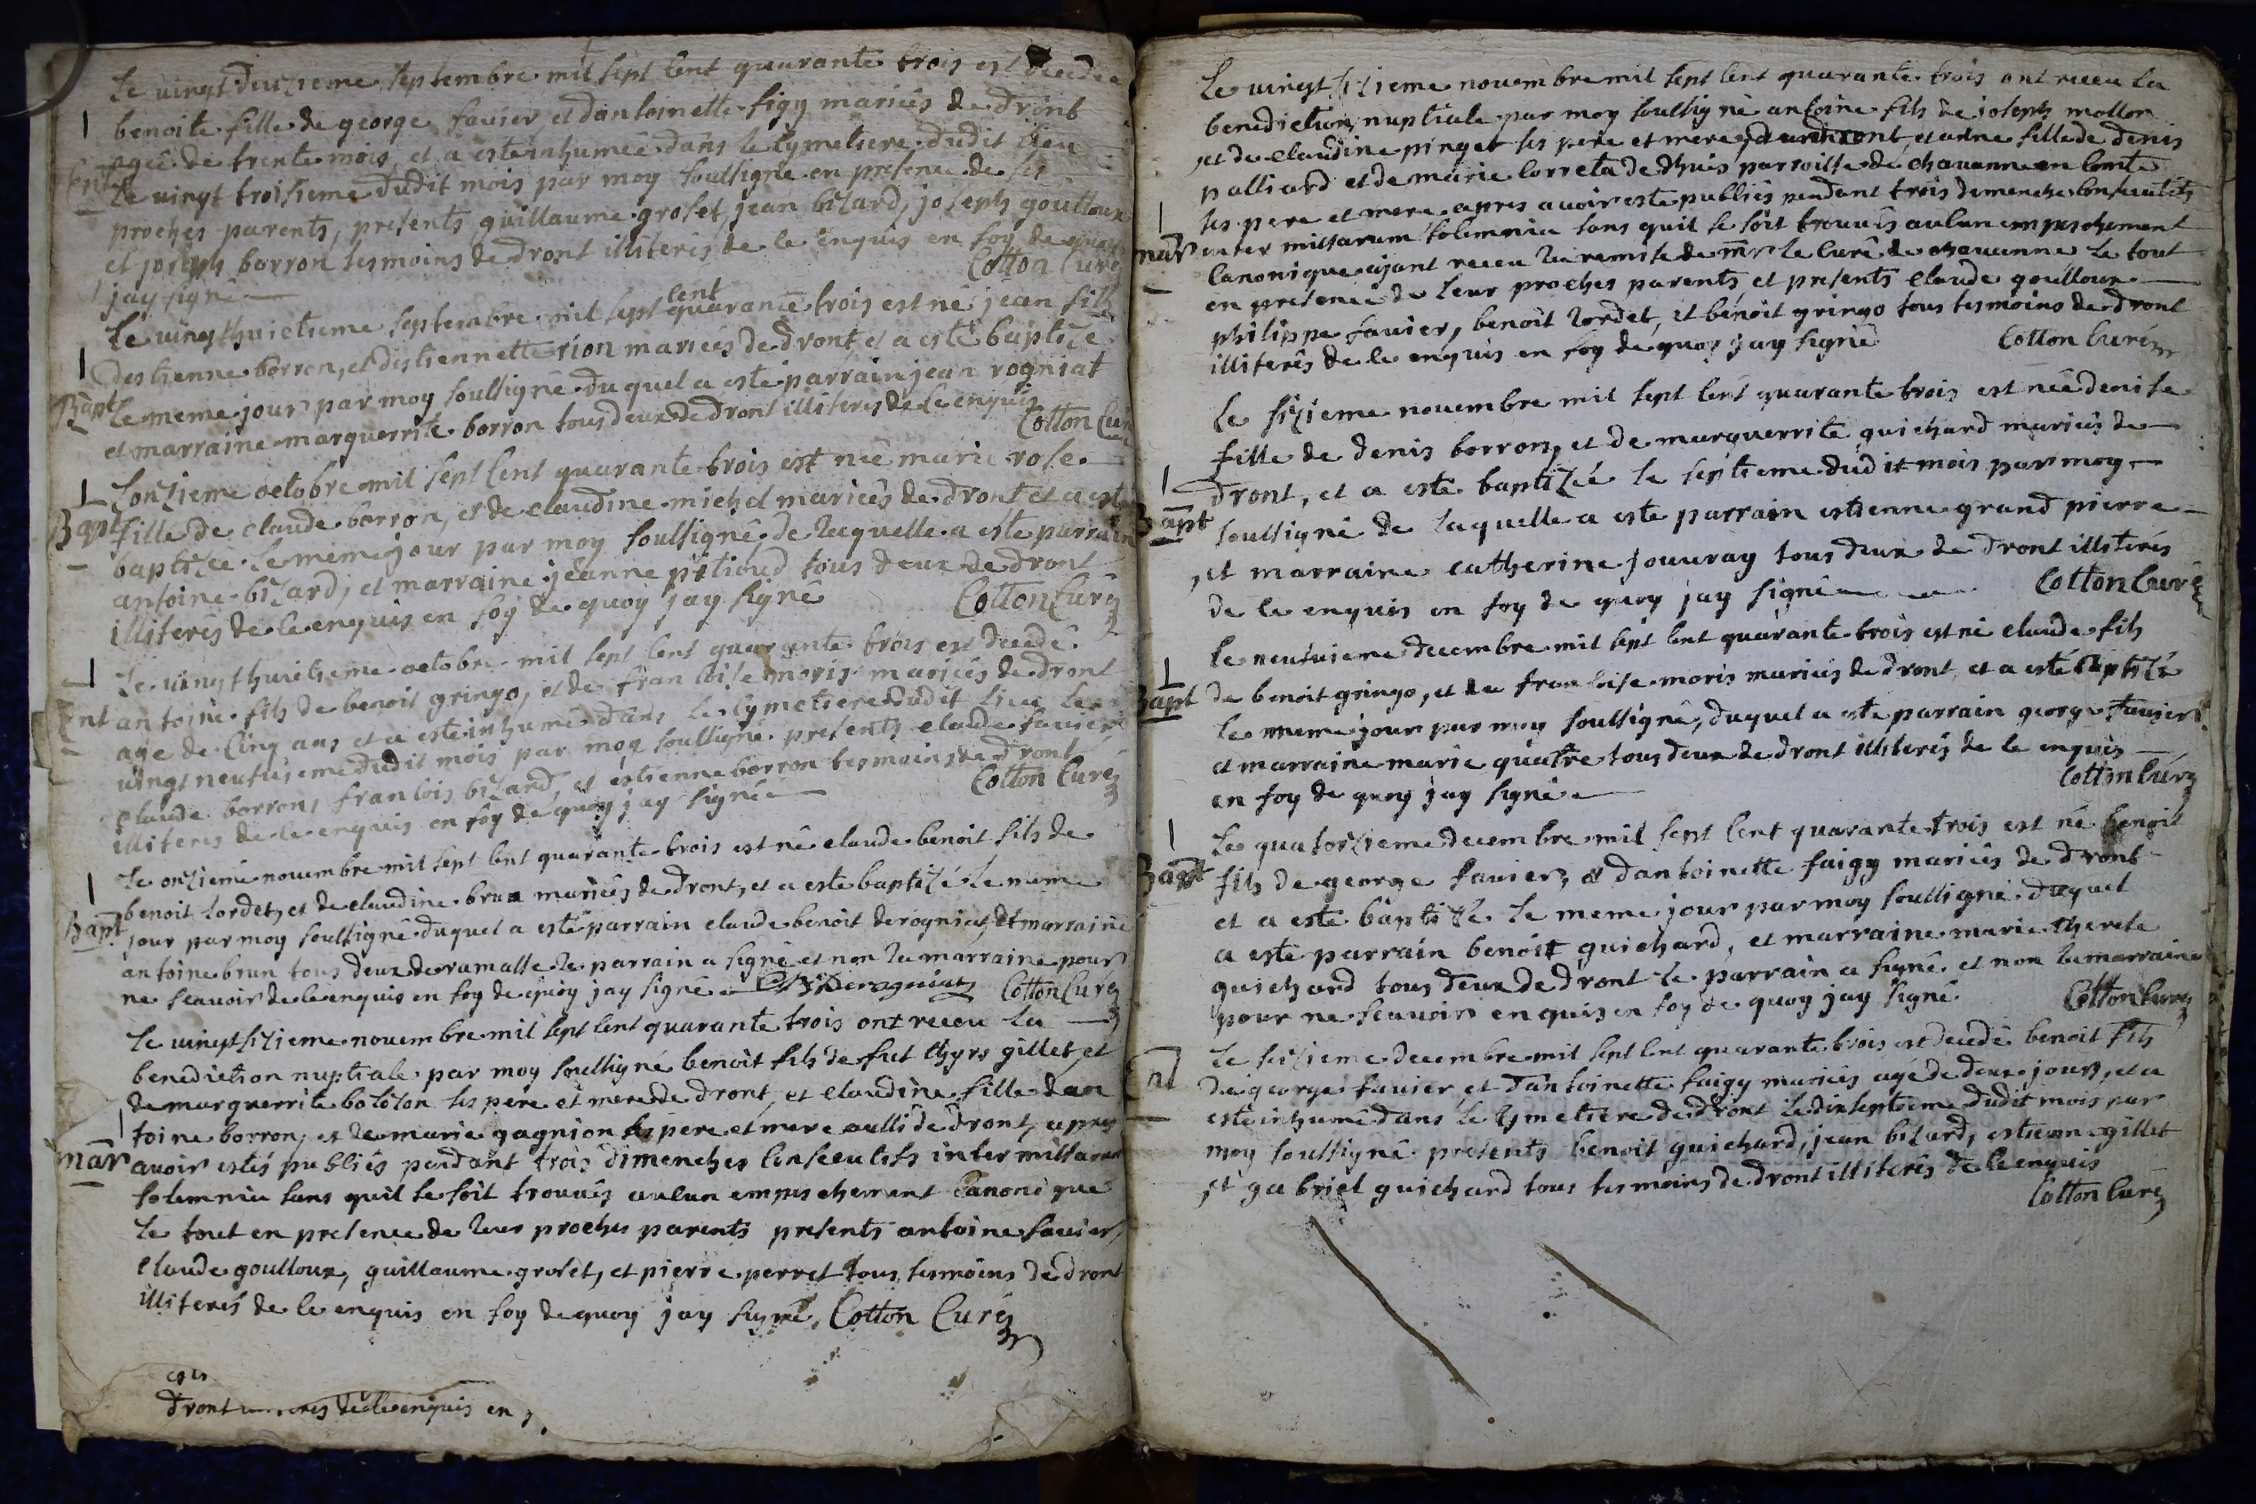 Le vingt deuzieme septembre mil sept cent quarante trois est decedee
benoite fille de george favier et dantoinette figy mariés de dront
agee de trente mois, et a este inhumée dans le cymetiere dudit lieu
Ent le vingt troisieme dudit mois par moy soussigné en presence de ses
proches parents, presents guillaume groset, jean bizard, joseph goulloux
et joseph borron tesmoins de dront illiterés de ce enquis en foy de quoy
jay signé Cotton Curé
Le vingt huictieme septembre mil sept cent quarante trois est né jean fils
destienne borron, et destiennette rion mariés de dront, et a esté baptizé
Bapt le meme jour par moy soussigné duquel a este parrain jean rogniat
et marraine marguerrite borron tous deux de dront illiteres de ce enquis
Cotton Curé
Lonzieme octobre mil sept cent quarante trois est née marie rose
Bapt fille de claude borron, et de claudine michel mariés de dront et a esté
baptizée le meme jour par moy soussigné de laquelle a este parrain
antoine bizard, et marraine jeanne pitioud tous deux de dront
illiterés de ce enquis en foy de quoy jay signé Cotton Curé
Le vingt huitieme octobre mil sept cent quarante trois est decedé
Ent antoine fils de benoit gringo, et de francoise moris mariés de dront
age de cinq ans et a este inhumé dans le cymetiere dudit lieu le
vingt neufvieme dudit mois par moy soussigné presents claude favier
claude borron, francois bizard, et estienne borron tesmoins de dront
illiteres de ce enquis en foy de quoy jay signé Cotton Curé
Le onzieme novembre mil sept cent quarante trois est né claude benoit fils de
benoit lordet, et de claudine brun mariés de dront, et a este baptizé le meme
Bapt jour par moy soussigné duquel a esté parrain claude benoit derogniat, et marraine
antoine brun tous deux de ramasse le parrain a signé et non la marraine pour
ne scavoir de ce enquis en foy de quoy jay signé Derogniat Cotton Curé
Le vingt sizieme novembre mil sept cent quarante trois ont receu la
benediction nuptiale par moy soussigné benoit fils de fut thyrs gillet, et
de marguerrite bolozon ses pere et mere de dront, et claudine fille dan
toine borron, et de marie gagnion ses pere et mere aussi de dront, apres
mar avoir estés publiés pendant trois dimenches consecutifs inter missarum
solemnia sans quil se soit trouvés aucun empeschement Canonique
le tout en presence de leur proches parents presents antoine favier,
claude goulloux, guillaume groset, et pierre perret tous tesmoins de dront
illiterés de ce enquis en foy de quoy jay signé, Cotton Curé
dront de ce enquis en
Le vingt sizieme novembre mil sept cent quarante trois ont receu la
benediction nuptiale par moy soussigné antoine fils de joseph mollon
et de claudine pinget ses pere et mere de dront, et anne fille de denis
palliard et de marie correta de dhuis parroisse de chavanne en comte
ses pere et mere apres avoir este publiés pendant trois dimenche consecutifs
mar inter missarum solemnia sans quil se soit trouvés aucun empeschement
Canonique ayant receu la remise de mr le Curé de chavanne le tout
en presence de leur proches parents et presents claude goulloux
philippe favier, benoit lordet, et benoit gringo tous tesmoins de dront
illiterés de ce enquis en foy de quoy jay signé Cotton Curé
Le sizieme novembre mil sept cent quarante trois est née denise
fille de denis borron, et de marguerrite guichard mariés de
dront, et a este baptizée le septieme dudit mois par moy
Bapt soussigné de laquelle a este parrain estienne grand pierre
et marraine catherine jouvray tous deux de dront illiterés
de ce enquis en foy de quoy jay signé Cotton Curé
Le neufvieme decembre mil sept cent quarante trois est né claude fils
Bapt de benoit gringo, et de francoise moris mariés de dront, et a esté baptizé
le meme jour par moy soussigné, duquel a este parrain george favier
et marraine marie quatre tous deux de dront illiterés de ce enquis
en foy de quoy jay signé Cotton Curé
Le quatorzieme decembre mil sept cent quarante trois est né benoit
Bapt fils de george favier, et dantoinette faigy mariés de dront
et a esté baptizé le meme jour par moy soussigné duquel
a este parrain benoit guichard, et marraine marie therese
guichard tous deux de dront le parrain a signé et non la marraine
pour ne scavoir enquis en foy de quoy jay signé Cotton Curé
Le seizieme decembre mil sept cent quarante trois est decedé benoit fils
Ent de george favier, et dantoinette faigy mariés agé de deux jours, et a
esté inhumé dans le cymetiere de dront le dixseptieme dudit mois par
moy soussigné presents benoit guichard, jean bizard, estienne gillet
et gabriel guichard tous tesmoins de dront illiterés de ce enquis
Cotton Curé